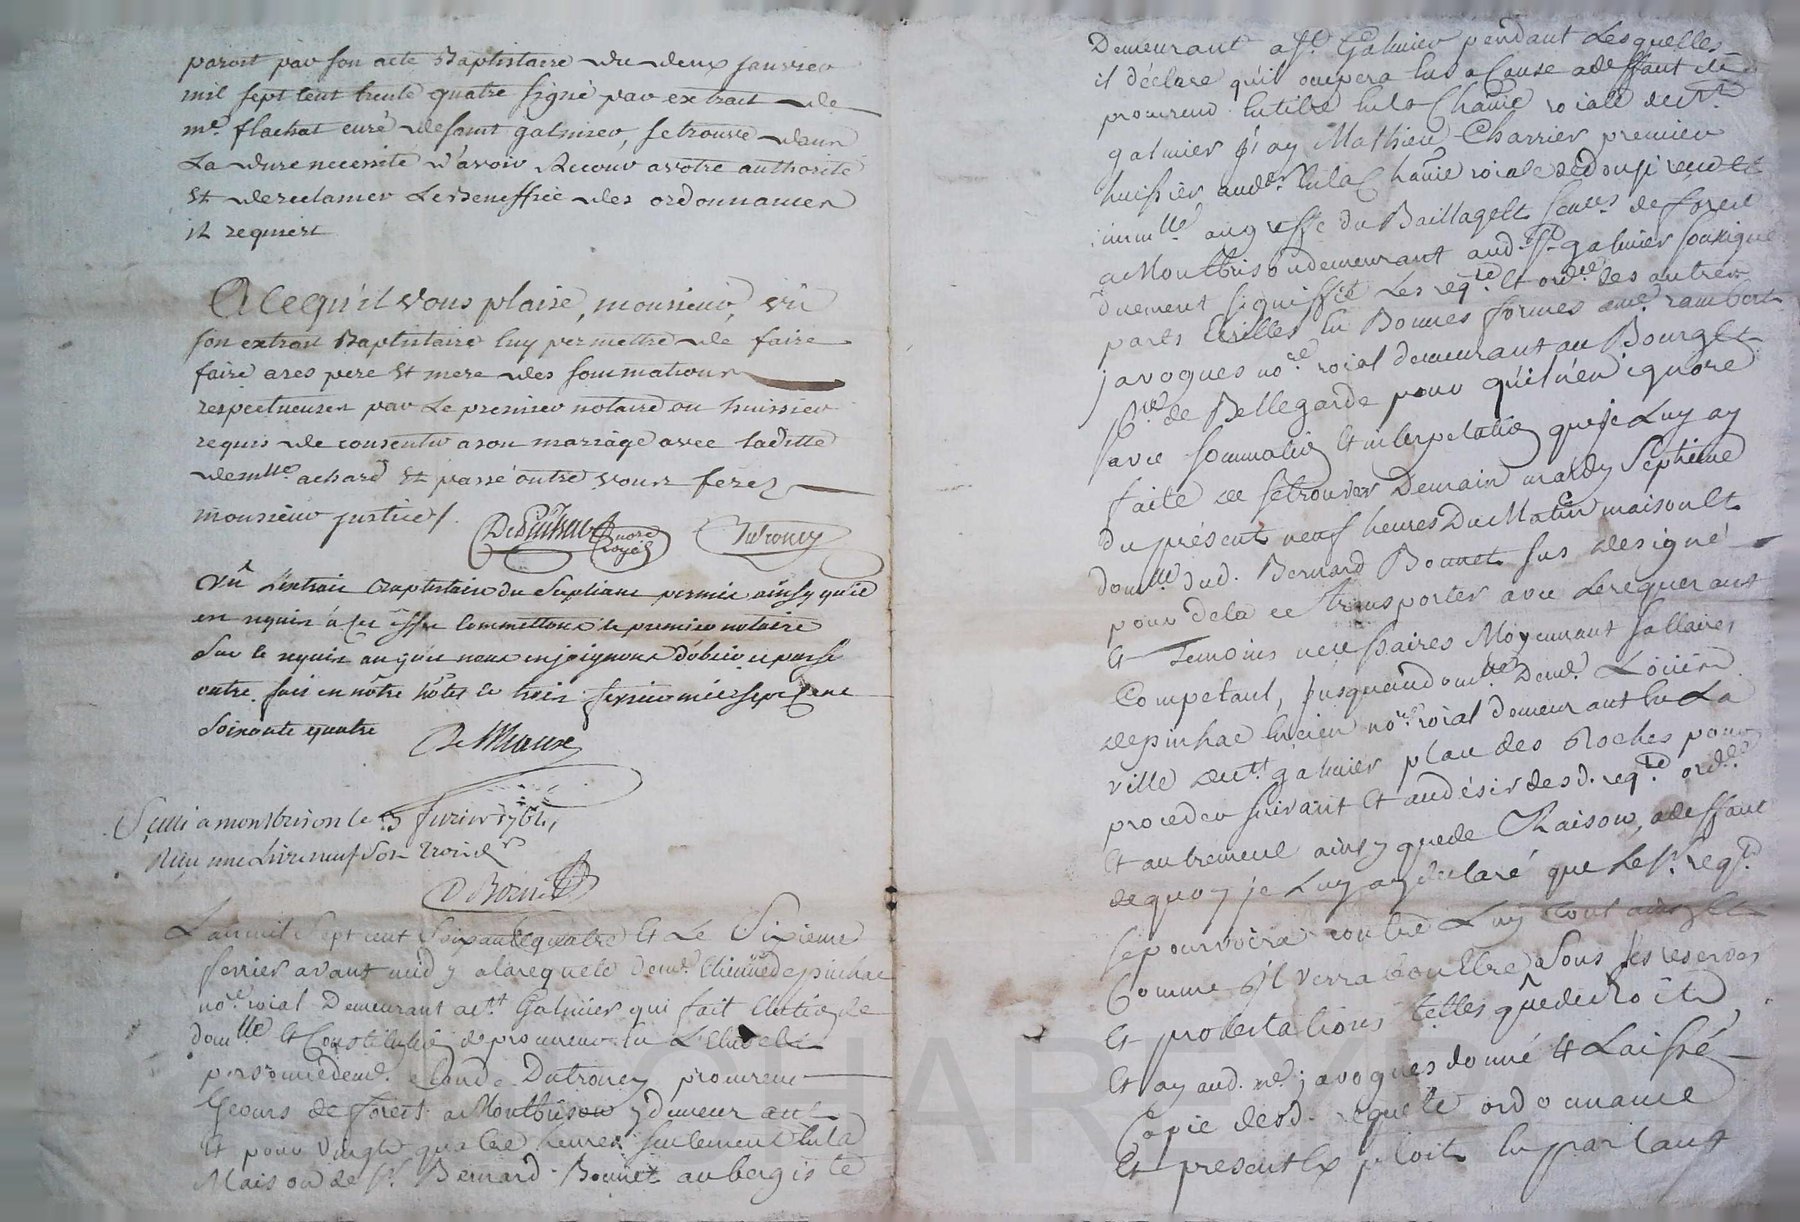 paroit par son acte Baptistaire du deux janvier
mil sept cent trente quatre signé par extrait de
me. flachat curé de saint galmier, se trouve dans
La dure necessité d'avoir Recour a votre authorité
Et de reclamer Le Beneffice des ordonnances
il requiert
A Ce qu'il vous plaise, monsieur, vû
son extrait Baptistaire luy permettre de faire
faire a ses pere Et mere des sommations
respectueuses par Le premier notaire ou huissier
requis de consentir a son mariage avec laditte
demlle. achard Et passé outre vous ferés
monsieur justice.
Depinhac no.re royal Dutroncy
Vû L'extrait Baptistaire du Supliant permis ainsy qu'il
est requis à cet effet Commettons le premier notaire
Sur le requis auquel nous enjoignons d'obeir et passé
outre fait en nôtre hôtel le trois fevrier mil sept cent
Soixante quatre
De Meaux
Scellé a montbrison le 3 fevrier 1764
Reçu une Livre neuf Sols trois d.
L'an mil Sept cent Soixante quatre Et Le Sixieme
fevrier avant midy a la requete de me. Etienne depinhac
nore. roial Demeurant a st. Galmier qui fait Election de
domlle Et Constitution de procureur en L'Etude Et
personne de me. claude Dutroncy procureur
Ez cours de forest a Montbrison y demeurant
Et pour vingt quatre heures seulement en la
Maison de Sr. Bernard Bonnet aubergiste
Demeurant a St. Galmier pendant Lesquelles
il déclare qu'il occupera en sa Cause a deffaut de
procureur en titre en la Chanie roiale de St.
galmier j'ay Mathieu Charrier premier
huissier aud.er en la Chanie roiale de donzi reçu Et
immlle. au greffe du Baillage Et senes. de forest
a Montbrison demeurant aud. St. galmier soussigné
duement signiffié Les reqte. Et ordce. des autres
parts Ecrittes en Bonnes formes a me. rambert
javogues nore. roial demeurant au Bourg Et
pse. de Bellegarde pour qu'il n'en ignore
avec sommation Et interpelation que je Luy ay
faite de se trouver Demain mardy Septieme
du présent neuf heures Du Matin maison Et
domlle dud. Bernard Bonnet sus designé
pour de la ce transporter avec Le requerant
Et Temoins necessaires Moyennant sallaires
Competant, jusqu'au domlle de me. Loüis
depinhac Encien nore. roial demeurant En La
ville de st. galmier place des Roches pour
proceder suivant Et au désir desd. reqte. ordce.
Et autrement ainsy que de Raison, a deffaut
de quoy je Luy ay déclaré que Le Sr. reqt.
se pourvoira contre Luy tout ainsy Et
Comme il verra bon Etre Sous ses reserves
Et protestations telles que de droit
Et ay aud. me. javogues donné Et Laissé
Copie desd. requete ordonnance
Et present Exploit En parlant
CHARTYR